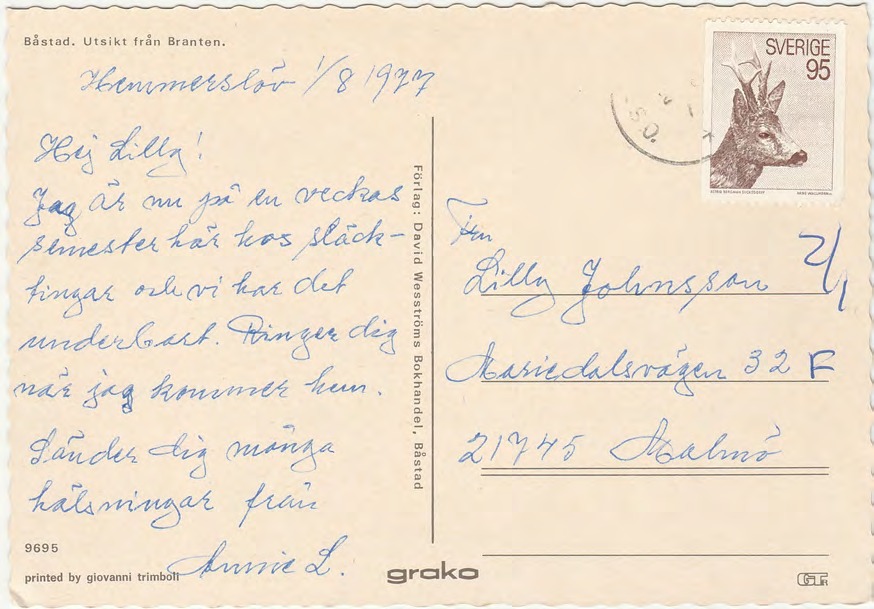 Båstad. Utsikt från Branten.
Hemmerslöv 1/8 1977
Hej Lilly!
Jag är nu på en veckas
semester här hos släck-
tingar och vi har det
underbart. Ringer dig
när jag kommer hem.
Sänder dig många
hälsningar från
Annie L.
9695
printed by giovanni trimboli
Förlag: David Wesströms Bokhandel, Båstad
grako
SVERIGE
95
Fru
Lilly Johnsson
Mariedalsvägen 32 F
21745 Malmö